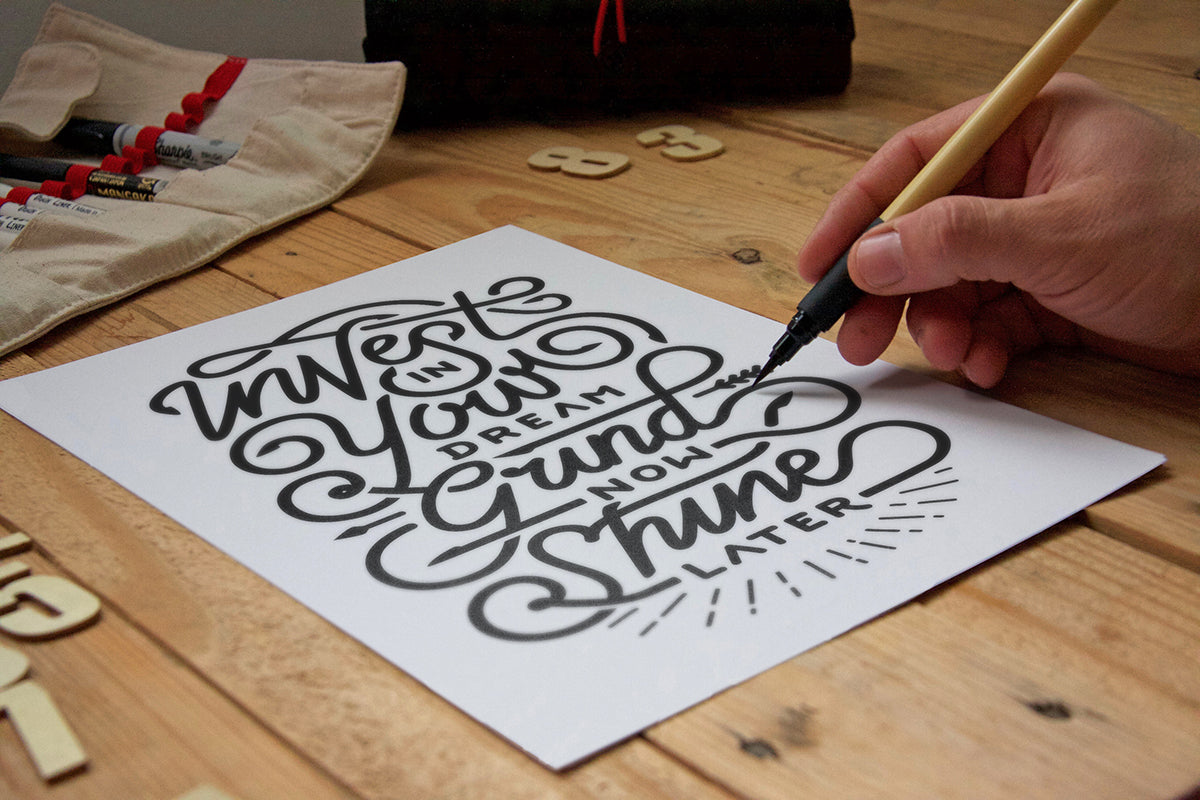 Invest
IN
Your
DREAM
Grind
NOW
Shine
LATER
8 3
Sharpie